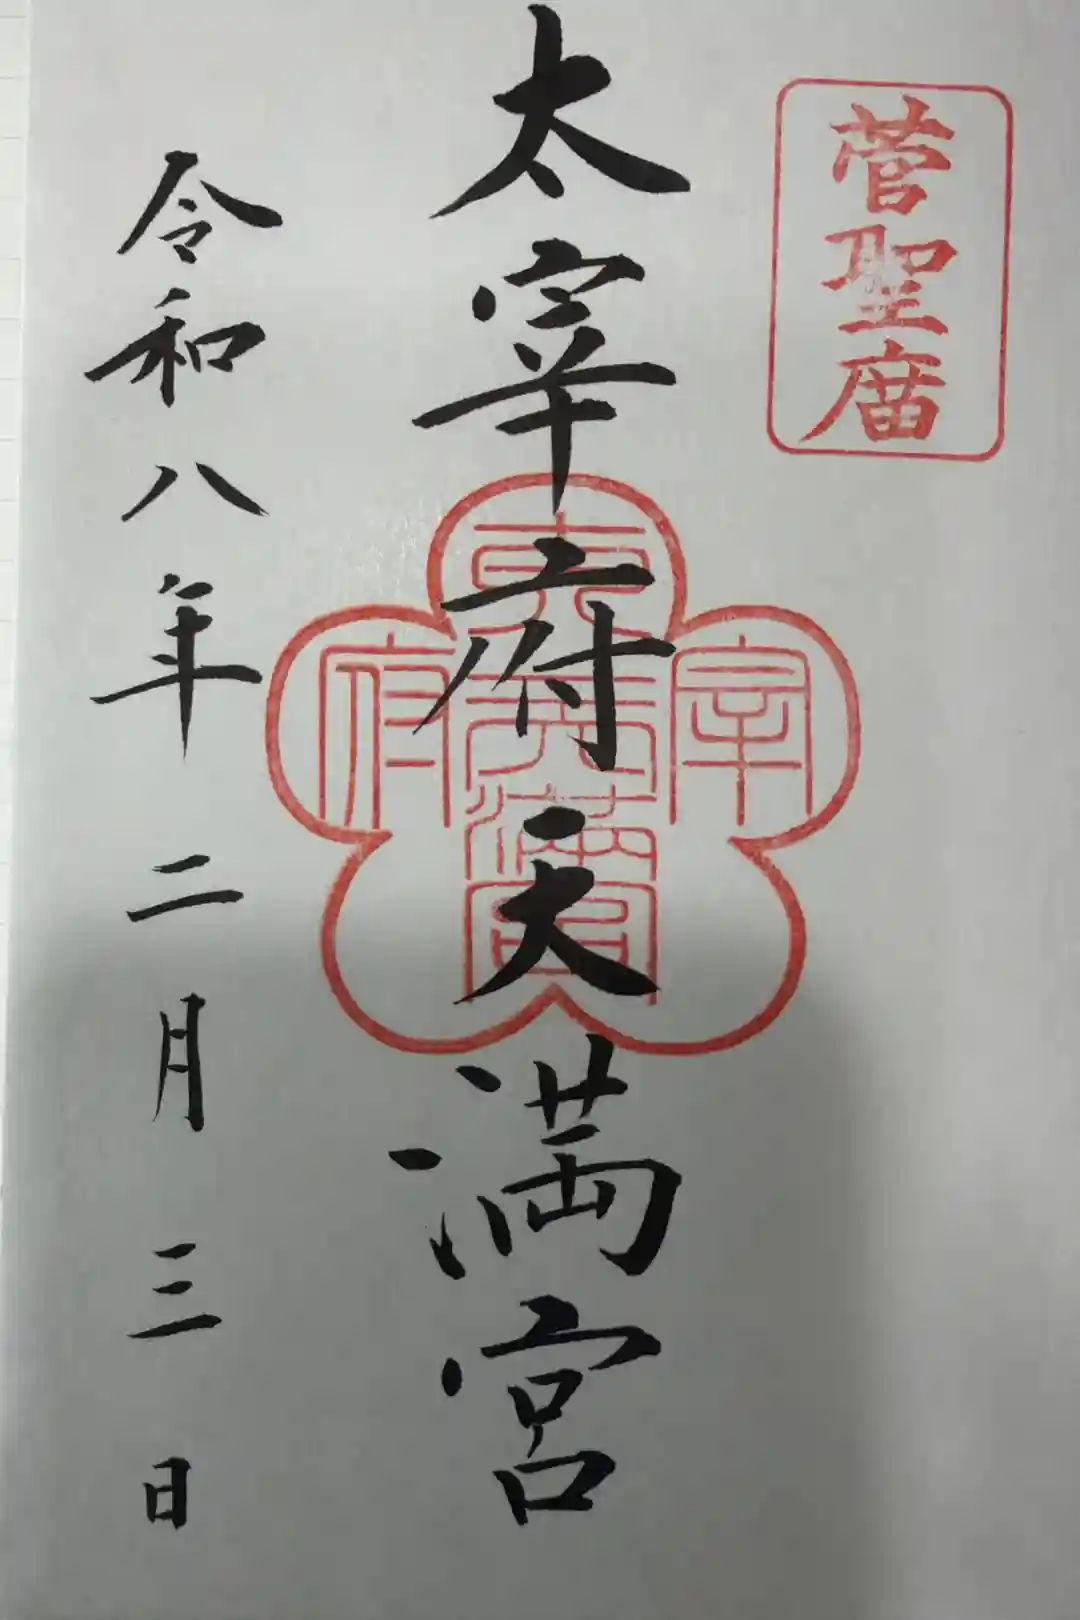 菅聖庿
太宰府天満宮
令和八年二月三日
宰
府
天満宮